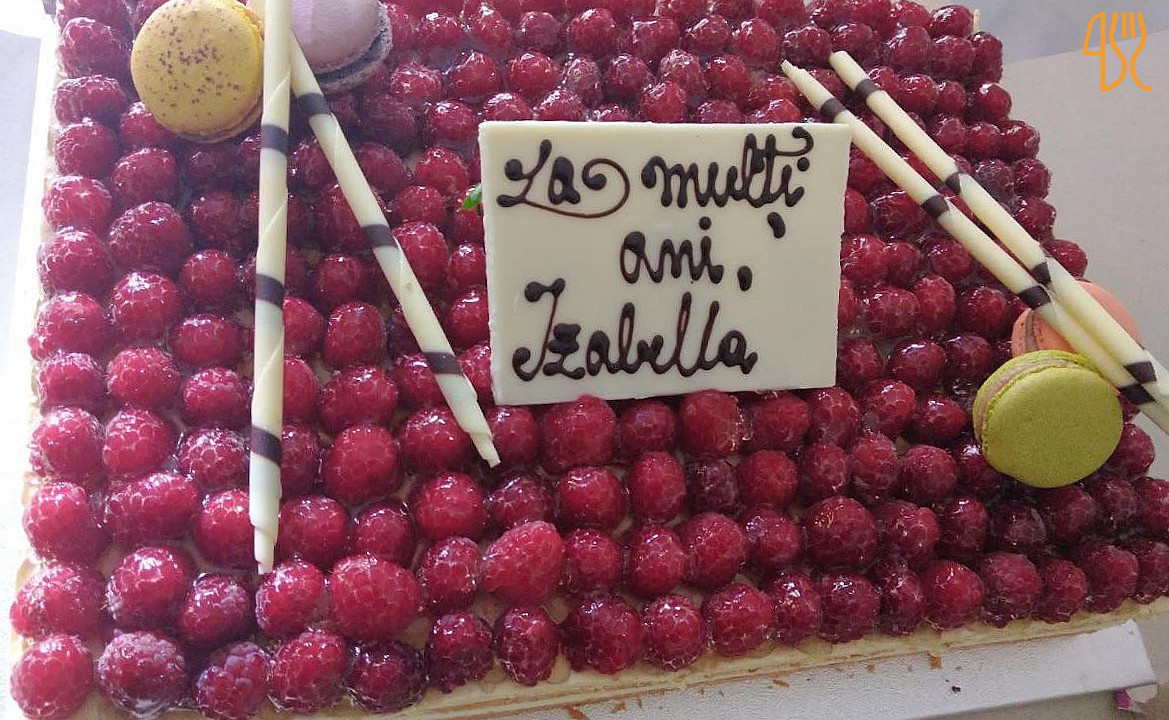 La mulți
ani,
Izabella